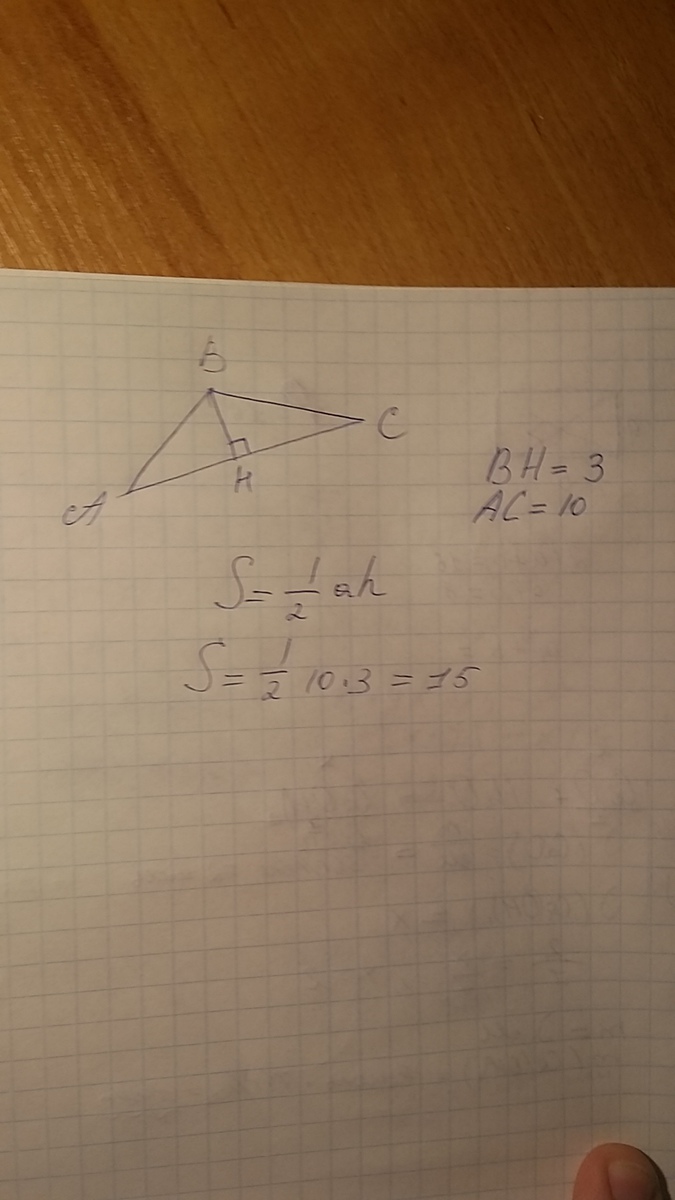 B
C
H
A
BH = 3
AC = 10
S = 1/2 ah
S = 1/2 10·3 = 15